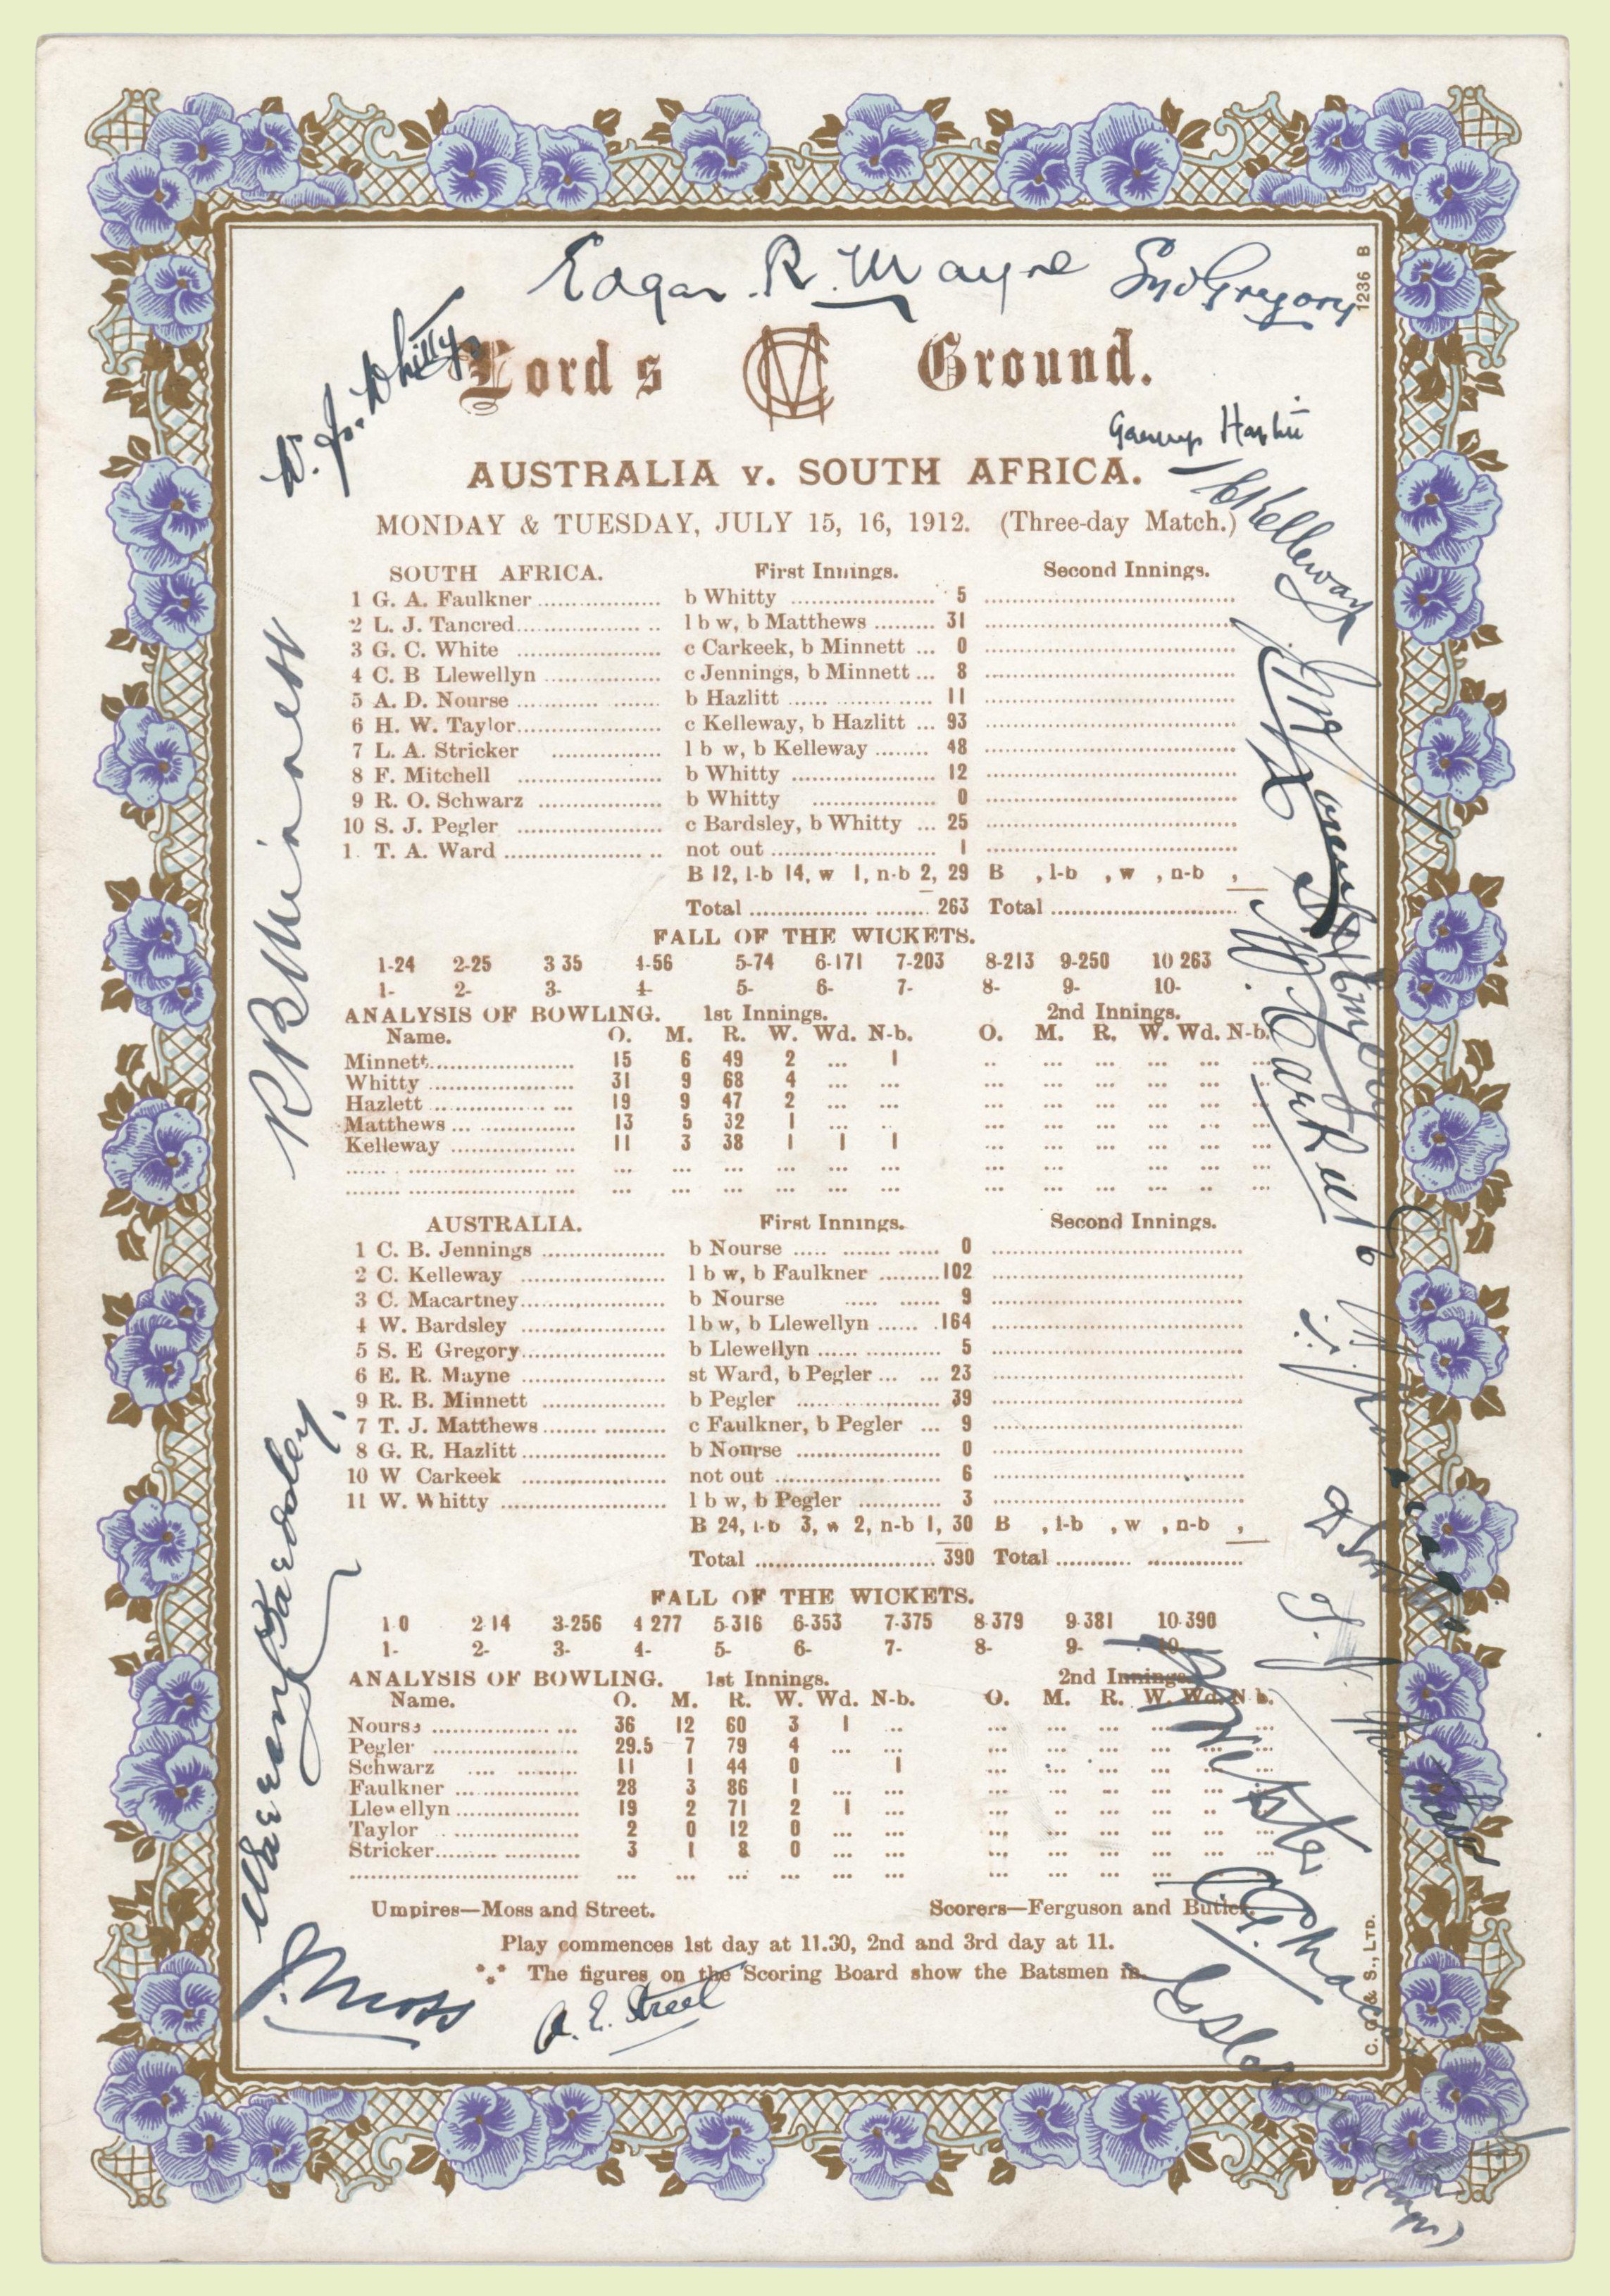 Edgar R. Mayne Syd Gregory
1236 B
W. J. Whitty
Lord s MCC Ground.
AUSTRALIA v. SOUTH AFRICA.
MONDAY & TUESDAY, JULY 15, 16, 1912. (Three-day Match.)
Kelleway
SOUTH AFRICA. First Innings. Second Innings.
1 G. A. Faulkner .................. b Whitty ..................... 5
2 L. J. Tancred.................. l b w, b Matthews ......... 31
3 G. C. White .................. c Carkeek, b Minnett ... 0
4 C. B Llewellyn .................. c Jennings, b Minnett ... 8
5 A. D. Nourse .................. b Hazlitt .................. 11
6 H. W. Taylor.................. c Kelleway, b Hazlitt ... 93
7 L. A. Stricker .................. l b w, b Kelleway ........ 48
8 F. Mitchell .................. b Whitty ..................... 12
9 R. O. Schwarz .................. b Whitty .................. 0
10 S. J. Pegler .................. c Bardsley, b Whitty ... 25
1 T. A. Ward .................. not out ..................... 1
B 12, l-b 14, w 1, n-b 2, 29 B , l-b , w , n-b ,
Total ..................... 263 Total .....................
FALL OF THE WICKETS.
1-24 2-25 3 35 4-56 5-74 6-171 7-203 8-213 9-250 10 263
1- 2- 3- 4- 5- 6- 7- 8- 9- 10-
ANALYSIS OF BOWLING. 1st Innings. 2nd Innings.
Name. O. M. R. W. Wd. N-b. O. M. R. W. Wd. N-b.
Minnett..................... 15 6 49 2 ... 1
Whitty ..................... 31 9 68 4 ... ...
Hazlett ..................... 19 9 47 2 ... ...
Matthews ..................... 13 5 32 1 ... ...
Kelleway ..................... 11 3 38 1 1 1
R B Minnett
W Carkeek
AUSTRALIA. First Innings. Second Innings.
1 C. B. Jennings .................. b Nourse .................. 0
2 C. Kelleway .................. l b w, b Faulkner .........102
3 C. Macartney.................. b Nourse .................. 9
4 W. Bardsley .................. l b w, b Llewellyn ...... .164
5 S. E Gregory.................. b Llewellyn .................. 5
6 E. R. Mayne .................. st Ward, b Pegler ... ... 23
9 R. B. Minnett .................. b Pegler ..................... 39
7 T. J. Matthews.................. c Faulkner, b Pegler ... 9
8 G. R. Hazlitt .................. b Nourse ..................... 0
10 W Carkeek .................. not out ..................... 6
11 W. Whitty ..................... l b w, b Pegler ............ 3
B 24, l-b 3, w 2, n-b 1, 30 B , l-b , w , n-b ,
Total ..................... 390 Total .....................
FALL OF THE WICKETS.
1 0 2 14 3-256 4 277 5-316 6-353 7-375 8-379 9-381 10-390
1- 2- 3- 4- 5- 6- 7- 8- 9- 10-
ANALYSIS OF BOWLING. 1st Innings. 2nd Innings.
Name. O. M. R. W. Wd. N-b. O. M. R. W. Wd. N b.
Nourse ..................... 36 12 60 3 1 ...
Pegler ..................... 29.5 7 79 4 ... ...
Schwarz ..................... 11 1 44 0 1
Faulkner ..................... 28 3 86 1 ... ...
Llewellyn ..................... 19 2 71 2 1 ...
Taylor ..................... 2 0 12 0 ... ...
Stricker..................... 3 1 8 0 ... ...
Warren Bardsley
Umpires—Moss and Street. Scorers—Ferguson and Butler.
Play commences 1st day at 11.30, 2nd and 3rd day at 11.
*.* The figures on the Scoring Board show the Batsmen in.
J. Moss A. E. Street
C. O. & S., LTD.